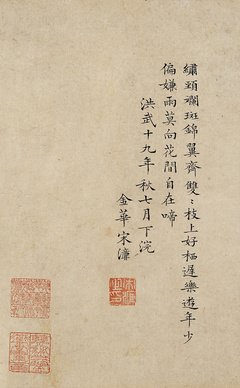 繡頚斕斑錦翼齊雙〻枝上好栖遲樂遊年少
偏嫌雨莫向花間自在啼
洪武十九年秋七月下浣
金華宋濂